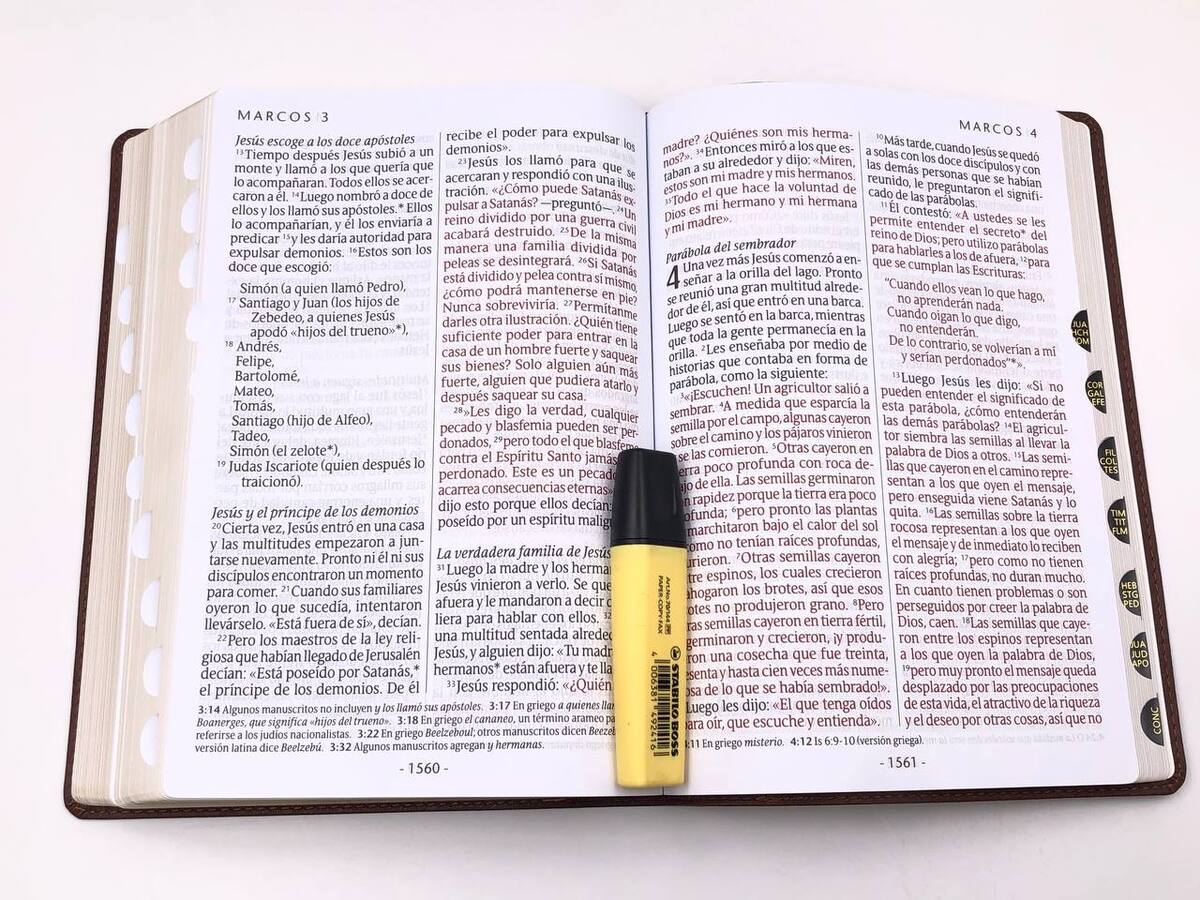 MARCOS | 3
Jesús escoge a los doce apóstoles
13Tiempo después Jesús subió a un
monte y llamó a los que quería que
lo acompañaran. Todos ellos se acer-
caron a él. 14Luego nombró a doce de
ellos y los llamó sus apóstoles.* Ellos
lo acompañarían, y él los enviaría a
predicar 15y les daría autoridad para
expulsar demonios. 16Estos son los
doce que escogió:
Simón (a quien llamó Pedro),
17 Santiago y Juan (los hijos de
Zebedeo, a quienes Jesús
apodó «hijos del trueno»*),
18 Andrés,
Felipe,
Bartolomé,
Mateo,
Tomás,
Santiago (hijo de Alfeo),
Tadeo,
Simón (el zelote*),
19 Judas Iscariote (quien después lo
traicionó).
Jesús y el príncipe de los demonios
20Cierta vez, Jesús entró en una casa
y las multitudes empezaron a jun-
tarse nuevamente. Pronto ni él ni sus
discípulos encontraron un momento
para comer. 21Cuando sus familiares
oyeron lo que sucedía, intentaron
llevárselo. «Está fuera de sí», decían.
22Pero los maestros de la ley reli-
giosa que habían llegado de Jerusalén
decían: «Está poseído por Satanás,*
el príncipe de los demonios. De él
recibe el poder para expulsar los
demonios».
23Jesús los llamó para que se
acercaran y respondió con una ilus-
tración. «¿Cómo puede Satanás ex-
pulsar a Satanás? —preguntó—. 24Un
reino dividido por una guerra civil
acabará destruido. 25De la misma
manera una familia dividida por
peleas se desintegrará. 26Si Satanás
está dividido y pelea contra sí mismo,
¿cómo podrá mantenerse en pie?
Nunca sobreviviría. 27Permítanme
darles otra ilustración. ¿Quién tiene
suficiente poder para entrar en la
casa de un hombre fuerte y saquear
sus bienes? Solo alguien aún más
fuerte, alguien que pudiera atarlo y
después saquear su casa.
28»Les digo la verdad, cualquier
pecado y blasfemia pueden ser per-
donados, 29pero todo el que blasfeme
contra el Espíritu Santo jamás
perdonado. Este es un pecado
acarrea consecuencias eternas»
dijo esto porque ellos decían:
poseído por un espíritu malig
La verdadera familia de Jesús
31Luego la madre y los herma
Jesús vinieron a verlo. Se que
afuera y le mandaron a decir
liera para hablar con ellos. 32
una multitud sentada alrede
Jesús, y alguien dijo: «Tu mad
hermanos* están afuera y te lla
33Jesús respondió: «¿Quién
3:14 Algunos manuscritos no incluyen y los llamó sus apóstoles. 3:17 En griego a quienes llam
Boanerges, que significa «hijos del trueno». 3:18 En griego el cananeo, un término arameo pa
referirse a los judíos nacionalistas. 3:22 En griego Beelzeboul; otros manuscritos dicen Beeze
versión latina dice Beelzebú. 3:32 Algunos manuscritos agregan y hermanas.
- 1560 -
MARCOS | 4
madre? ¿Quiénes son mis herma-
nos?». 34Entonces miró a los que es-
taban a su alrededor y dijo: «Miren,
estos son mi madre y mis hermanos.
35Todo el que hace la voluntad de
Dios es mi hermano y mi hermana
y mi madre».
Parábola del sembrador
4 Una vez más Jesús comenzó a en-
señar a la orilla del lago. Pronto
se reunió una gran multitud alrede-
dor de él, así que entró en una barca.
Luego se sentó en la barca, mientras
que toda la gente permanecía en la
orilla. 2Les enseñaba por medio de
historias que contaba en forma de
parábola, como la siguiente:
3«¡Escuchen! Un agricultor salió a
sembrar. 4A medida que esparcía la
semilla por el campo, algunas cayeron
sobre el camino y los pájaros vinieron
se las comieron. 5Otras cayeron en
ierra poco profunda con roca de-
jo de ella. Las semillas germinaron
n rapidez porque la tierra era poco
ofunda; 6pero pronto las plantas
marchitaron bajo el calor del sol
omo no tenían raíces profundas,
urieron. 7Otras semillas cayeron
tre espinos, los cuales crecieron
ahogaron los brotes, así que esos
otes no produjeron grano. 8Pero
as semillas cayeron en tierra fértil,
germinaron y crecieron, ¡y produ-
ron una cosecha que fue treinta,
senta y hasta cien veces más nume-
osa de lo que se había sembrado!».
Luego les dijo: «El que tenga oídos
para oír, que escuche y entienda».
10Más tarde, cuando Jesús se quedó
a solas con los doce discípulos y con
las demás personas que se habían
reunido, le preguntaron el signifi-
cado de las parábolas.
11Él contestó: «A ustedes se les
permite entender el secreto* del
reino de Dios; pero utilizo parábolas
para hablarles a los de afuera, 12para
que se cumplan las Escrituras:
“Cuando ellos vean lo que hago,
no aprenderán nada.
Cuando oigan lo que digo,
no entenderán.
De lo contrario, se volverían a mí
y serían perdonados”*».
13Luego Jesús les dijo: «Si no
pueden entender el significado de
esta parábola, ¿cómo entenderán
las demás parábolas? 14El agricul-
tor siembra las semillas al llevar la
palabra de Dios a otros. 15Las semi-
llas que cayeron en el camino repre-
sentan a los que oyen el mensaje,
pero enseguida viene Satanás y lo
quita. 16Las semillas sobre la tierra
rocosa representan a los que oyen
el mensaje y de inmediato lo reciben
con alegría; 17pero como no tienen
raíces profundas, no duran mucho.
En cuanto tienen problemas o son
perseguidos por creer la palabra de
Dios, caen. 18Las semillas que caye-
ron entre los espinos representan
a los que oyen la palabra de Dios,
19pero muy pronto el mensaje queda
desplazado por las preocupaciones
de esta vida, el atractivo de la riqueza
y el deseo por otras cosas, así que no
4:11 En griego misterio. 4:12 Is 6:9-10 (versión griega).
- 1561 -
JUA
HCH
ROM
COR
GAL
EFE
FIL
COL
TES
TIM
TIT
FLM
HEB
STG
PED
JUA
JUD
APO
CONC
Art.No. 70/144
PAPER-COPY-FAX
STABILO BOSS
4 006381 492416